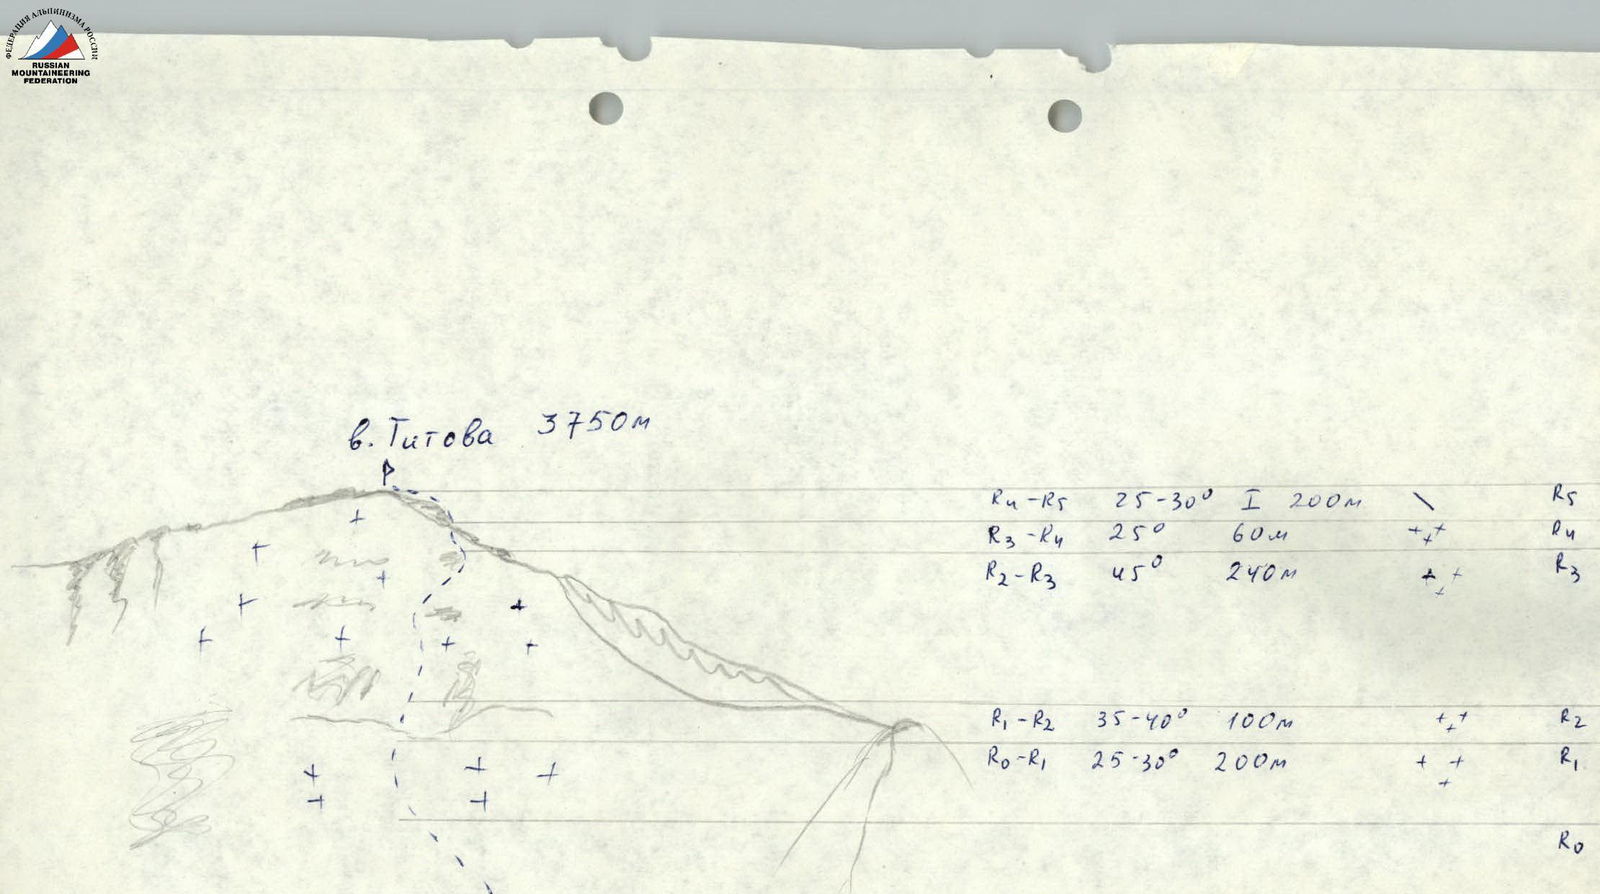 ФЕДЕРАЦИЯ АЛЬПИНИЗМА РОССИИ
RUSSIAN
MOUNTAINEERING
FEDERATION
в. Титова 3750м
R4-R5 25-30° I 200м R5
R3-R4 25° 60м R4
R2-R3 45° 240м R3
R1-R2 35-40° 100м R2
R0-R1 25-30° 200м R1
R0